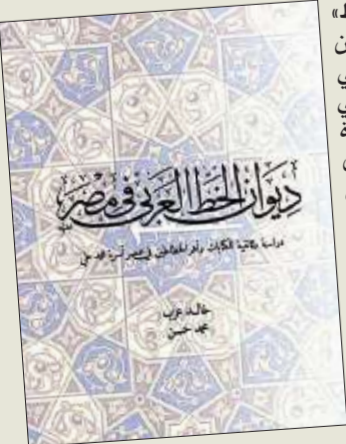 ديوان الخط العربي في مصر
دراسة وثائقية للكتابات وأهم الخطاطين في عصر أسرة محمد علي
خالد عزب
محمد حسن